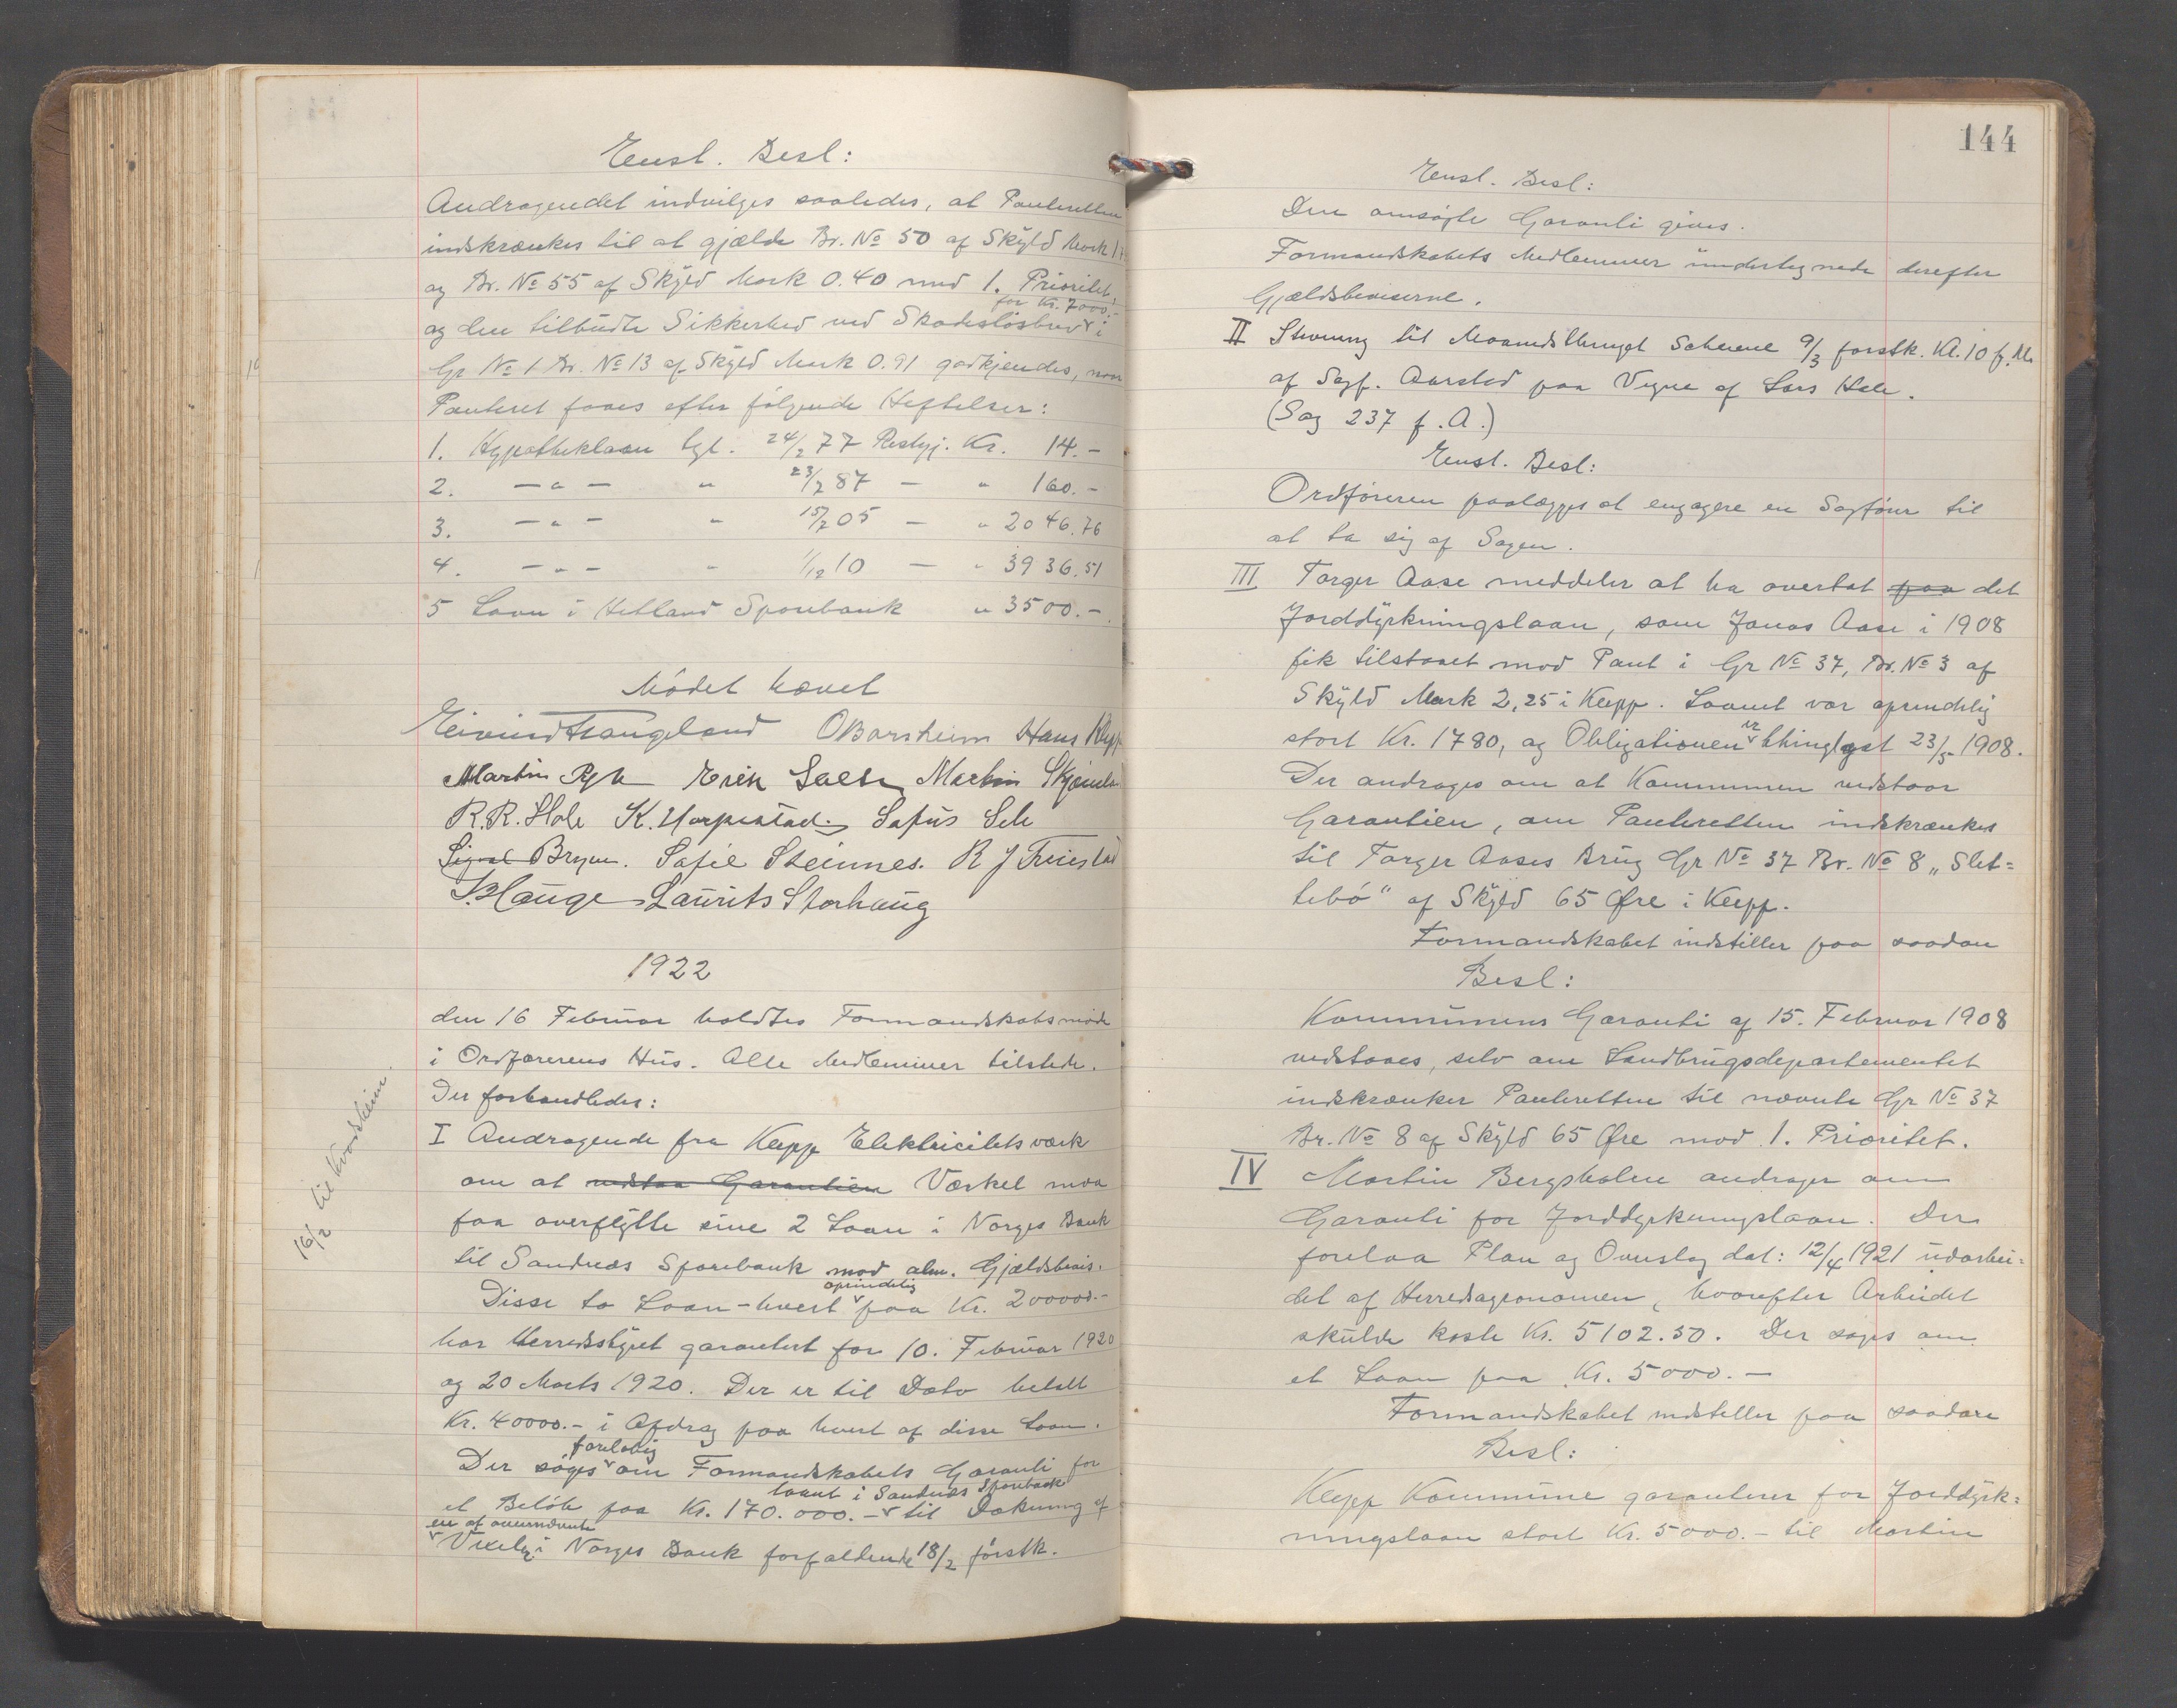 Enst. Besl:
Andragendet indvilges saaledes, at Panteretten
indskrænkes til at gjælde Br. № 50 af Skyld Mark
og Br. № 55 af Skyld Mark 0.40 mod 1. Prioritet,
for Kr. 7000.-
og den tilbudte Sikkerhed ved Skadesløsbrev i
Gr № 1 Br. № 13 af Skyld Mark 0.91 godkjendes, naar
Panteret faaes efter følgende Heftelser:
1. Hypotheklaan tgl. 24/2 77 Restgj. Kr. 14.-
2. -"- " 23/7 87 - " 160.-
3. -"- " 15/2 05 - " 2046.76
4. -"- " 1/12 10 - " 3936.51
5 Laan i Hetland Sparebank " 3500.-
Mødet hævet
Eivind Haugeland O Borsheim Hans Klepp
Martin Erik Martin
R.R. Hole K. Horpestad Sofus Sele
Sigval Bryne. Sofie Steinnes. R J Friestad
Hauge Laurits Storhaug
1922
den 16 Februar holdtes Formandskabsmøde
i Ordførerens Hus. Alle Medlemmer tilstede.
Der forhandledes:
16/2 til Kvordheim.
I Andragende fra Klepp Elektricitetsværk
om at vedstaa Garantien Værket maa
faa overflytte sine 2 Laan i Norges Bank
til Sandnæs Sparebank mod alm. Gjældsbevis.
oprindelig
Disse to Laan - hvert paa Kr. 200000.-
har Herredsstyret garantert for 10. Februar 1920
og 20 Marts 1920. Der er til Dato betalt
Kr. 40000.- i Afdrag paa hvert af disse Laan.
foreløbig
Der søges om Formandskabets Garanti for
laant i Sandnæs Sparebank
et Beløb paa Kr. 170.000.- til Dækning af
en af ovennævnte
Vexler i Norges Bank forfaldende 18/2 førstk.
144
Enst. Besl:
Den omsøgte Garanti gives.
Formandskabets Medlemmer undertegnede derefter
Gjældsbeviserne.
II Stevning til Maanedsthinget Scheene 9/3 førstk. Kl. 10 f. M.
af Sagf. Aarstad paa Vegne af Lars Hole.
(Sag 237 f. A.)
Enst. Besl:
Ordføreren paalægges at engagere en Sagfører til
at ta sig af Sagen.
III Torger Aase meddeler at ha overtat paa det
Jorddyrkningslaan, som Jonas Aase i 1908
fik tilstaaet mod Pant i Gr № 37, Br. № 3 af
Skyld Mark 2,25 i Klepp. Laanet var oprindelig
er
stort Kr. 1780, og Obligationen thinglyst 23/5 1908.
Der andrages om at Kommunen vedstaar
Garantien, om Panteretten indskrænkes
til Torger Aases Brug Gr № 37 Br. № 8 „Slet=
tebø“ af Skyld 65 Øre i Klepp.
Formandskabet indstiller paa saadan
Besl:
Kommunens Garanti af 15. Februar 1908
vedstaaes, selv om Landbrugsdepartementet
indskrænker Panteretten til nævnte Gr № 37
Br. № 8 af Skyld 65 Øre mod 1. Prioritet.
IV Martin Bergsholm andrager om
Garanti for Jorddyrkningslaan. Der
forelaa Plan og Overslag dat: 12/4 1921 udarbei=
det af Herredsagronomen, hvorefter Arbeidet
skulde koste Kr. 5102.50. Der søges om
et Laan paa Kr. 5000.-
Formandskabet indstiller paa saadan
Besl:
Klepp Kommune garanterer for Jorddyrk=
ningslaan stort Kr. 5000.- til Martin